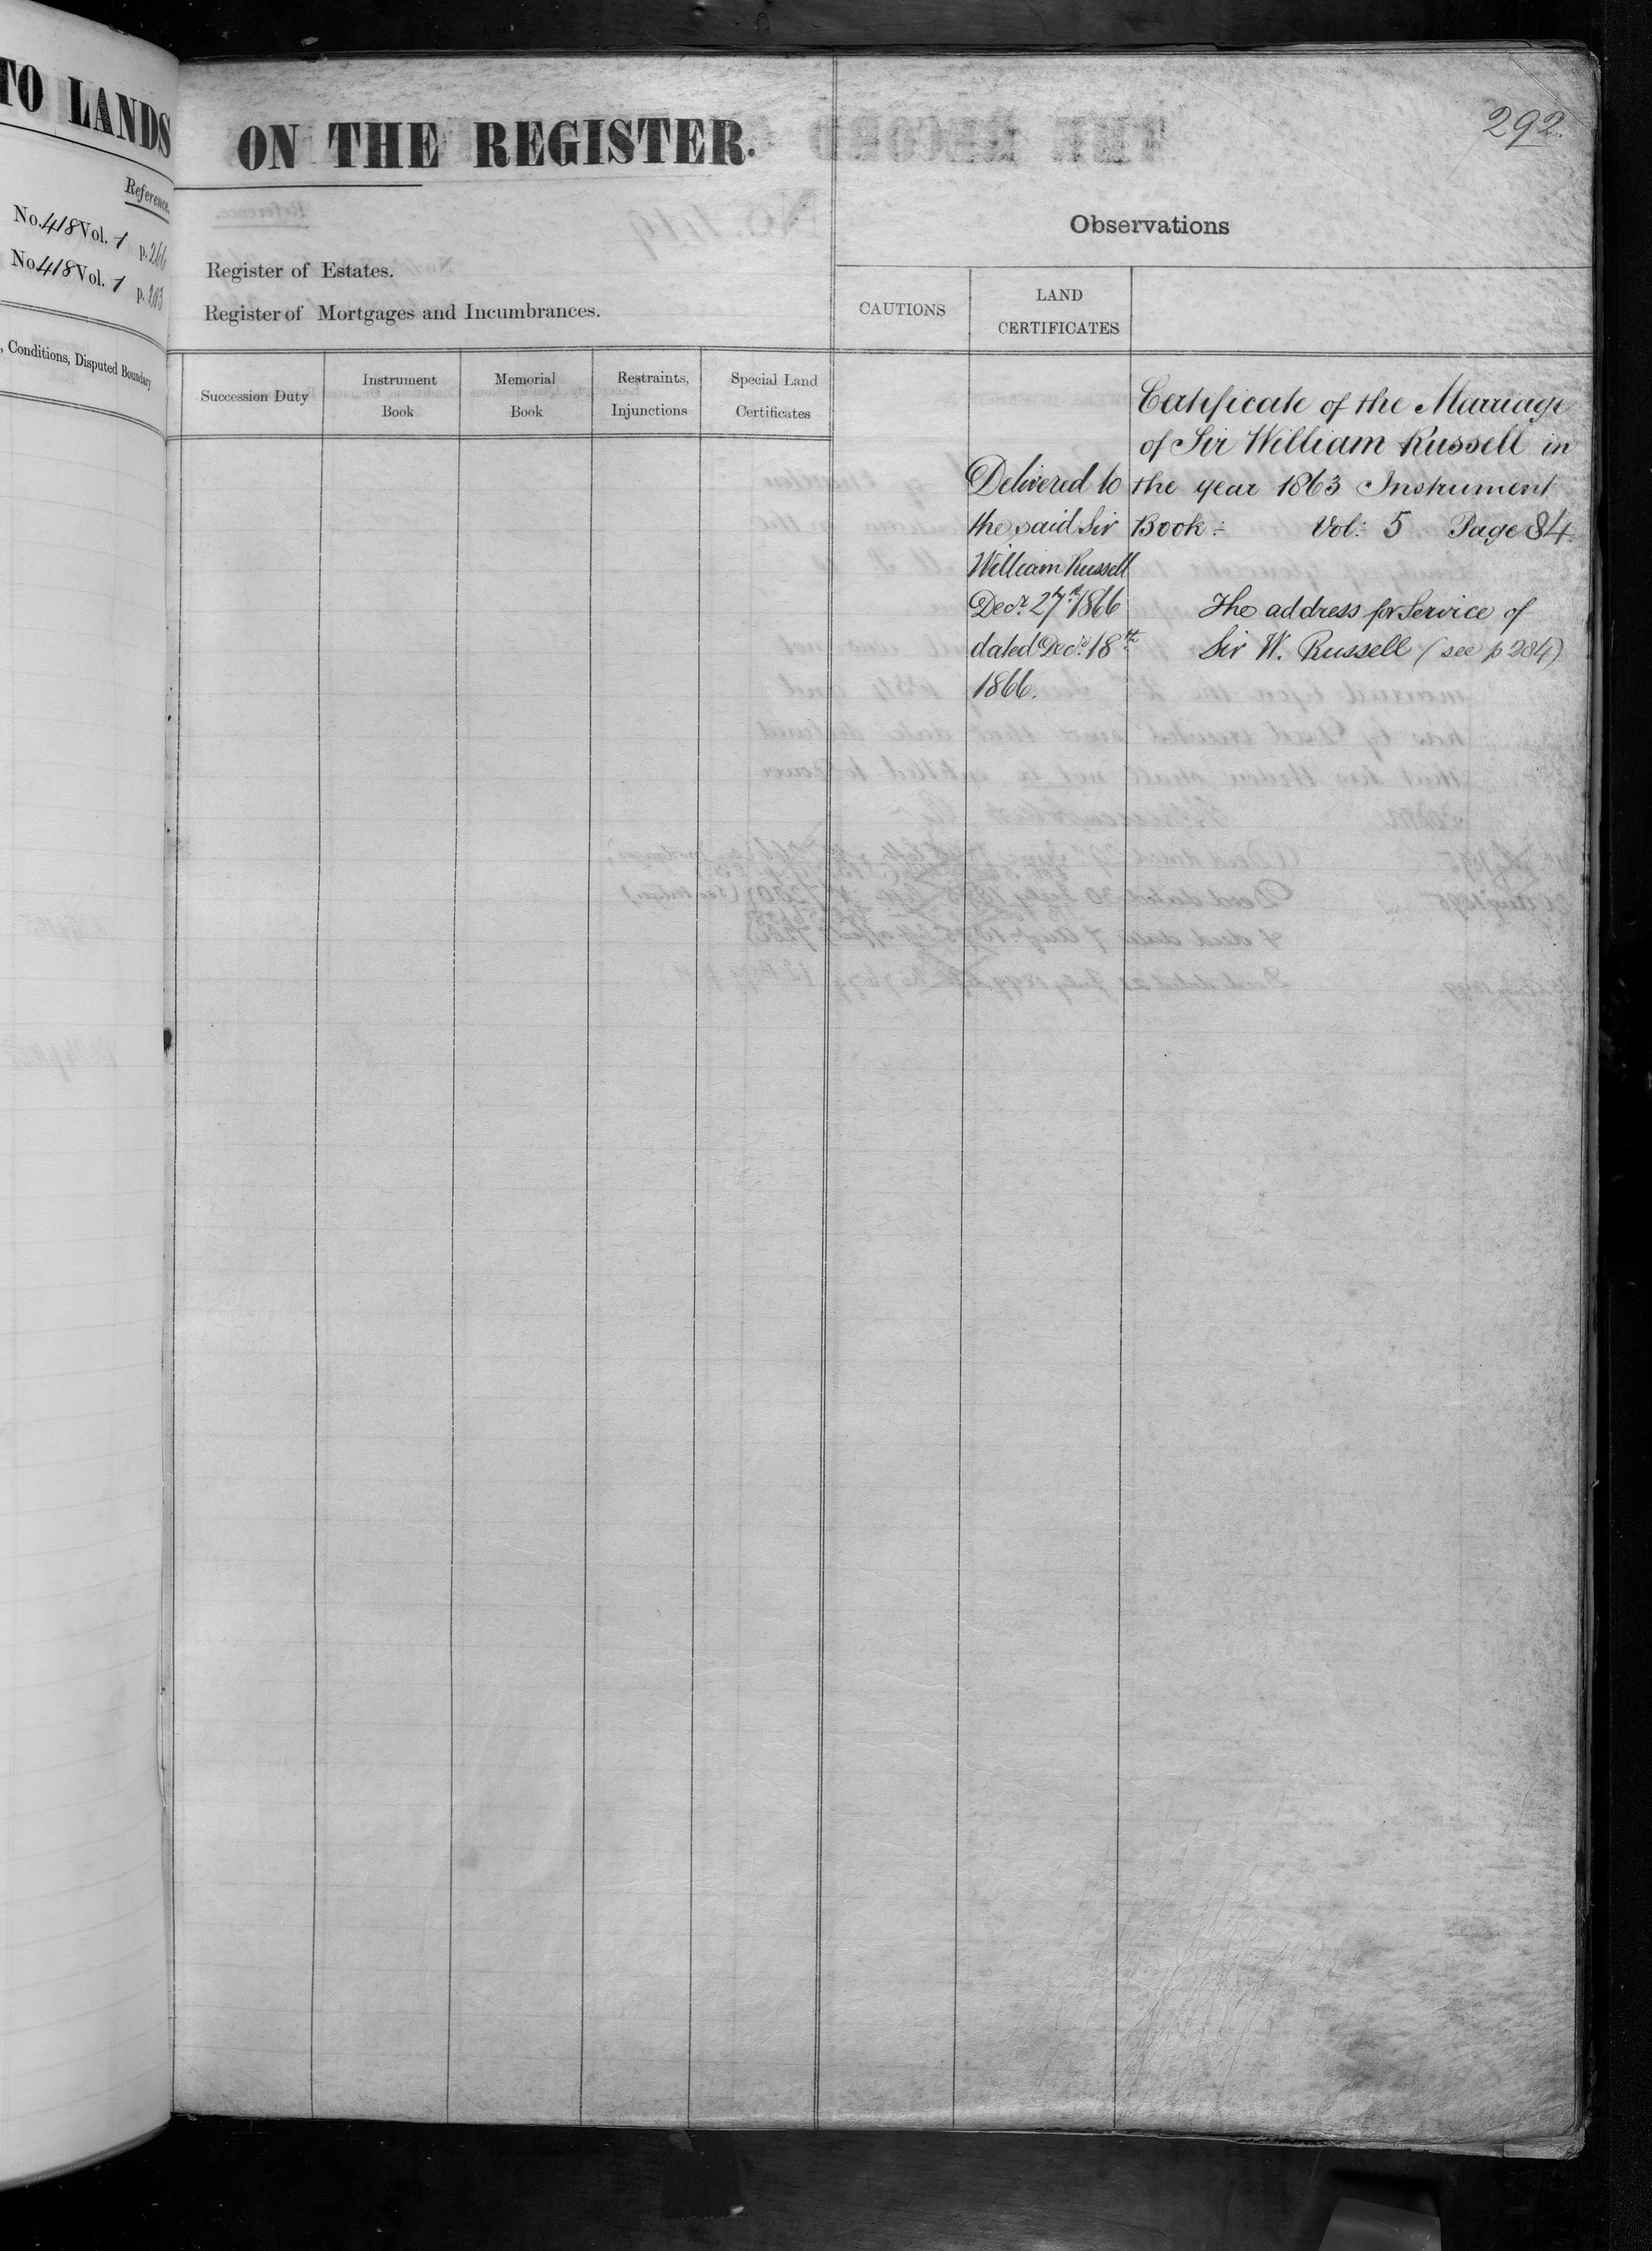 TO LANDS
Reference.
No. 418 Vol. 1 p. 266
No 418 Vol. 1 p. 263
, Conditions, Disputed Boundary
292.
ON THE REGISTER.
Observations
Register of Estates.
Register of Mortgages and Incumbrances.
CAUTIONS
LAND
CERTIFICATES
Succession Duty
Instrument
Book
Memorial
Book
Restraints,
Injunctions
Special Land
Certificates
Delivered to
the said Sir
William Russell
Decr. 27th 1866
dated Decr. 18th
1866.
Certificate of the Marriage
of Sir William Russell in
the year 1863 Instrument
Book :- Vol:- 5 Page 84.
The address for Service of
Sir W. Russell (see p 284)